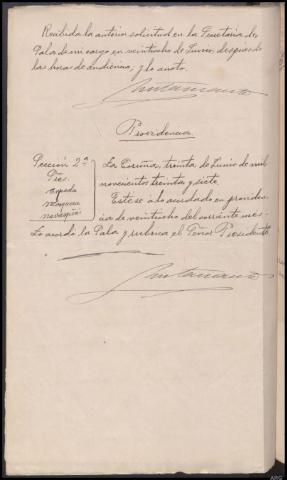 Recibida la anterior solicitud en la Secretaria de
Sala de mi cargo en veintiocho de Junio, despues de
las horas de audiencia, y lo anoto.
Providencia
Sección 2ª
Sres.
Cepeda
Mosquera
La Coruña, treinta de Junio de mil
novecientos treinta y siete.
Estese a lo acordado en providen
cia de veintiocho del corriente mes
Lo acordó la Sala y rubrica el Señor Presidente